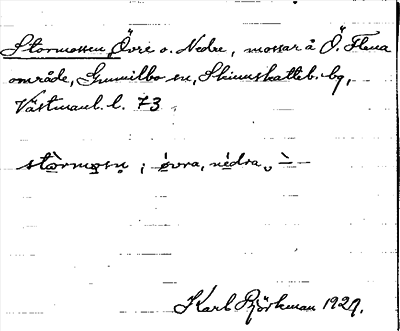 Stormossen, Övre o. Nedre, mossar å Ö. Flena
område, Gunnilbo sn, Skinnskatteb. bg,
Västmanl. l. 73
stòrmosn ; övra, nedra,
Karl Björkman 1929.